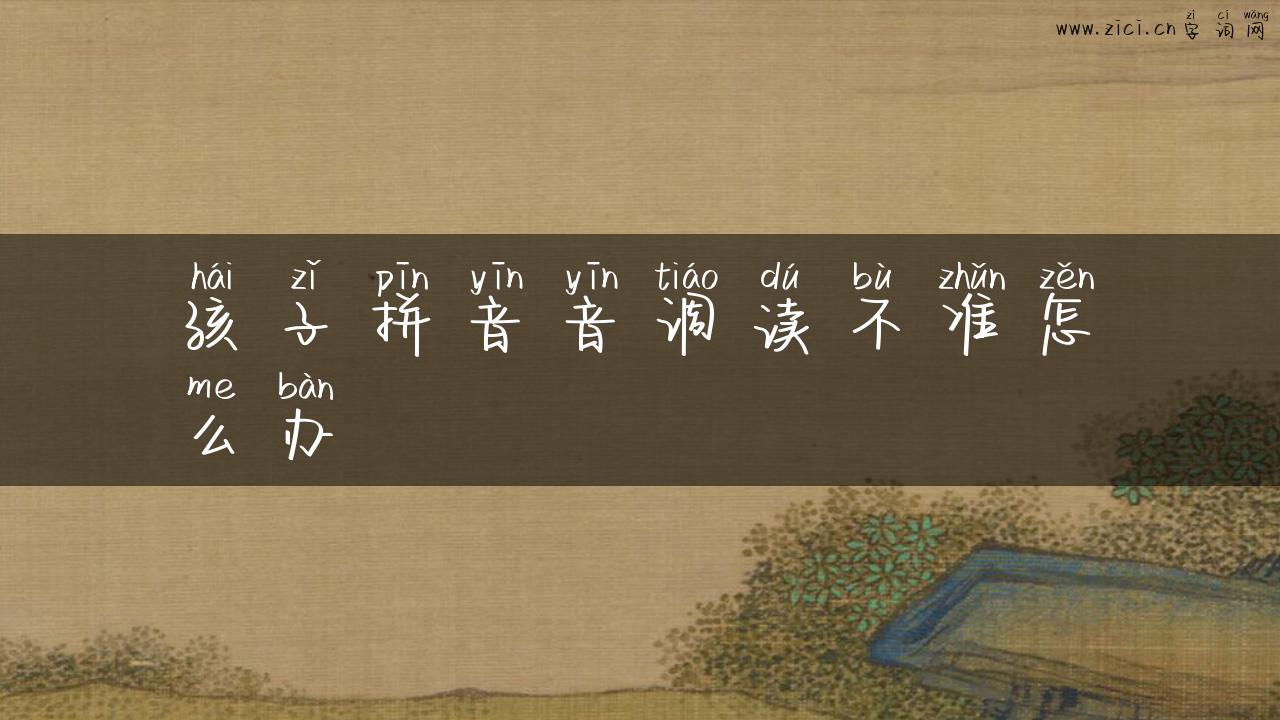 zì cí wǎng
www.zici.cn 字词网
hái zǐ pīn yīn yīn tiáo dú bù zhǔn zěn
孩子拼音音调读不准怎
me bàn
么办